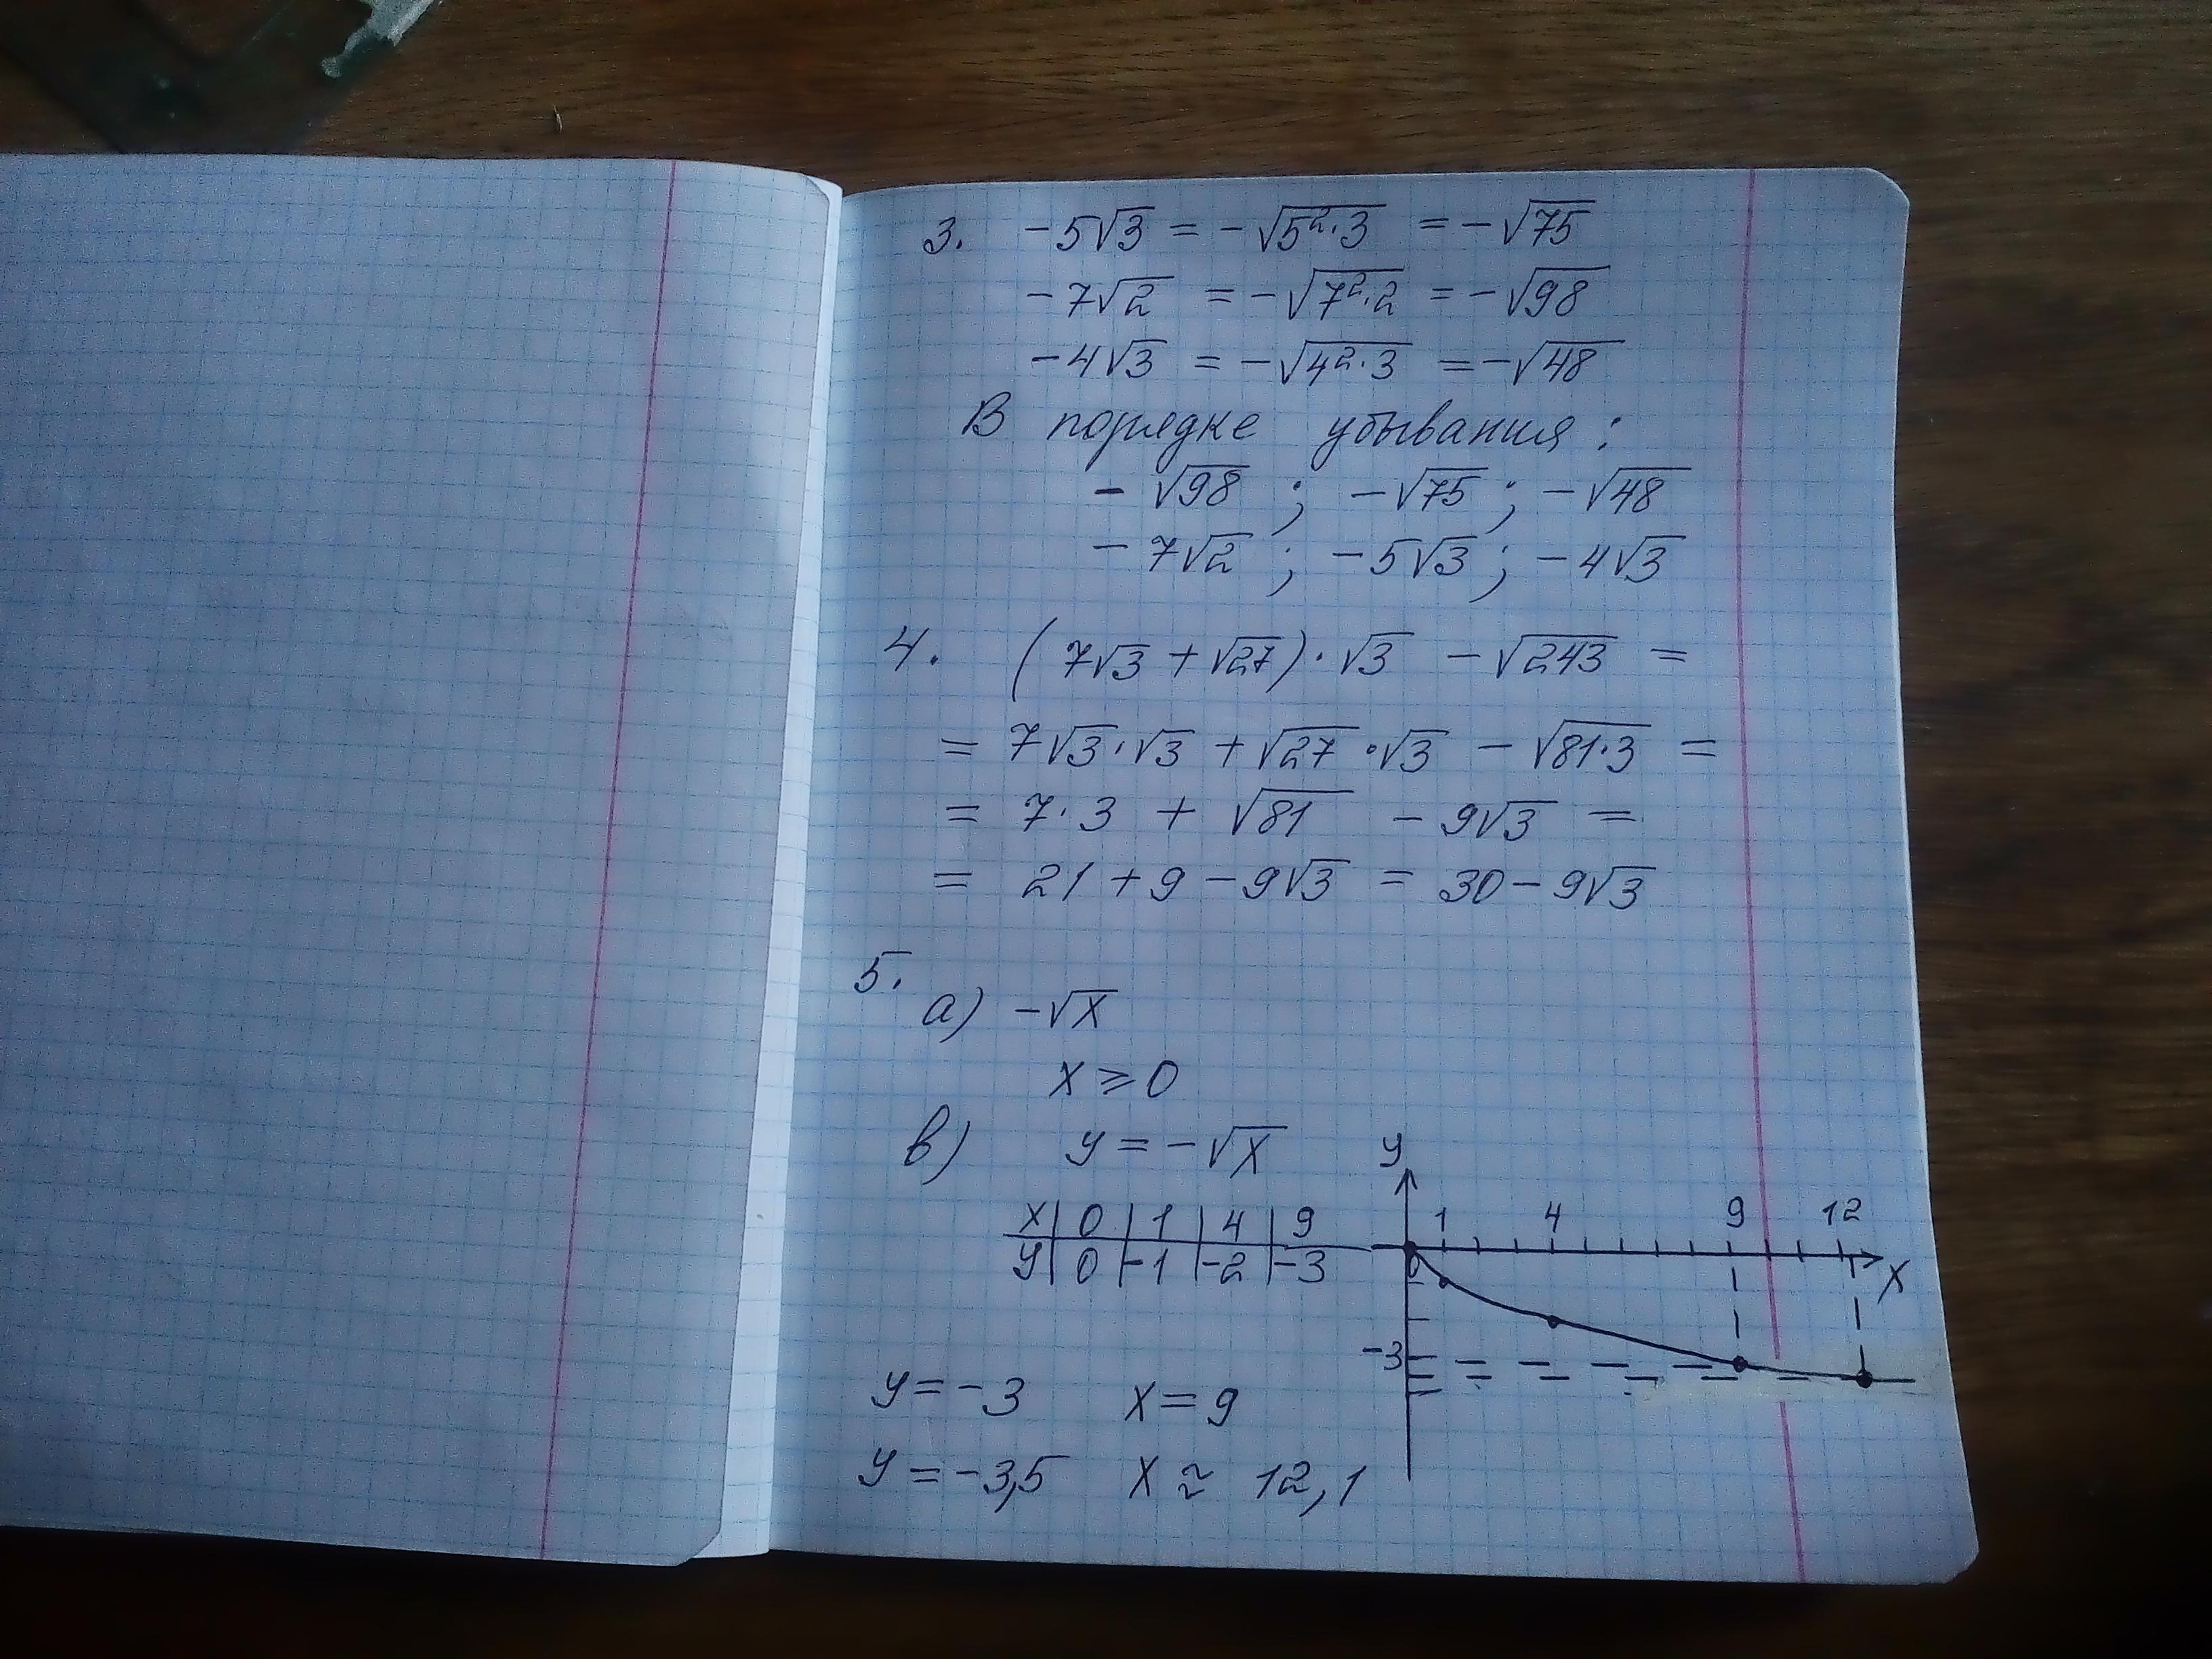 3. -5√3 = -√5²·3 = -√75
-7√2 = -√7²·2 = -√98
-4√3 = -√4²·3 = -√48
В порядке убывания:
-√98 ; -√75 ; -√48
-7√2 ; -5√3 ; -4√3
4. (7√3 + √27)·√3 - √243 =
= 7√3·√3 + √27·√3 - √81·3 =
= 7·3 + √81 - 9√3 =
= 21 + 9 - 9√3 = 30 - 9√3
5.
а) -√x
x ≥ 0
в) y = -√x
x | 0 | 1 | 4 | 9
y | 0 | -1 | -2 | -3
y
1 4 9 12
0
x
-3
y = -3 x = 9
y = -3,5 x ≈ 12,1